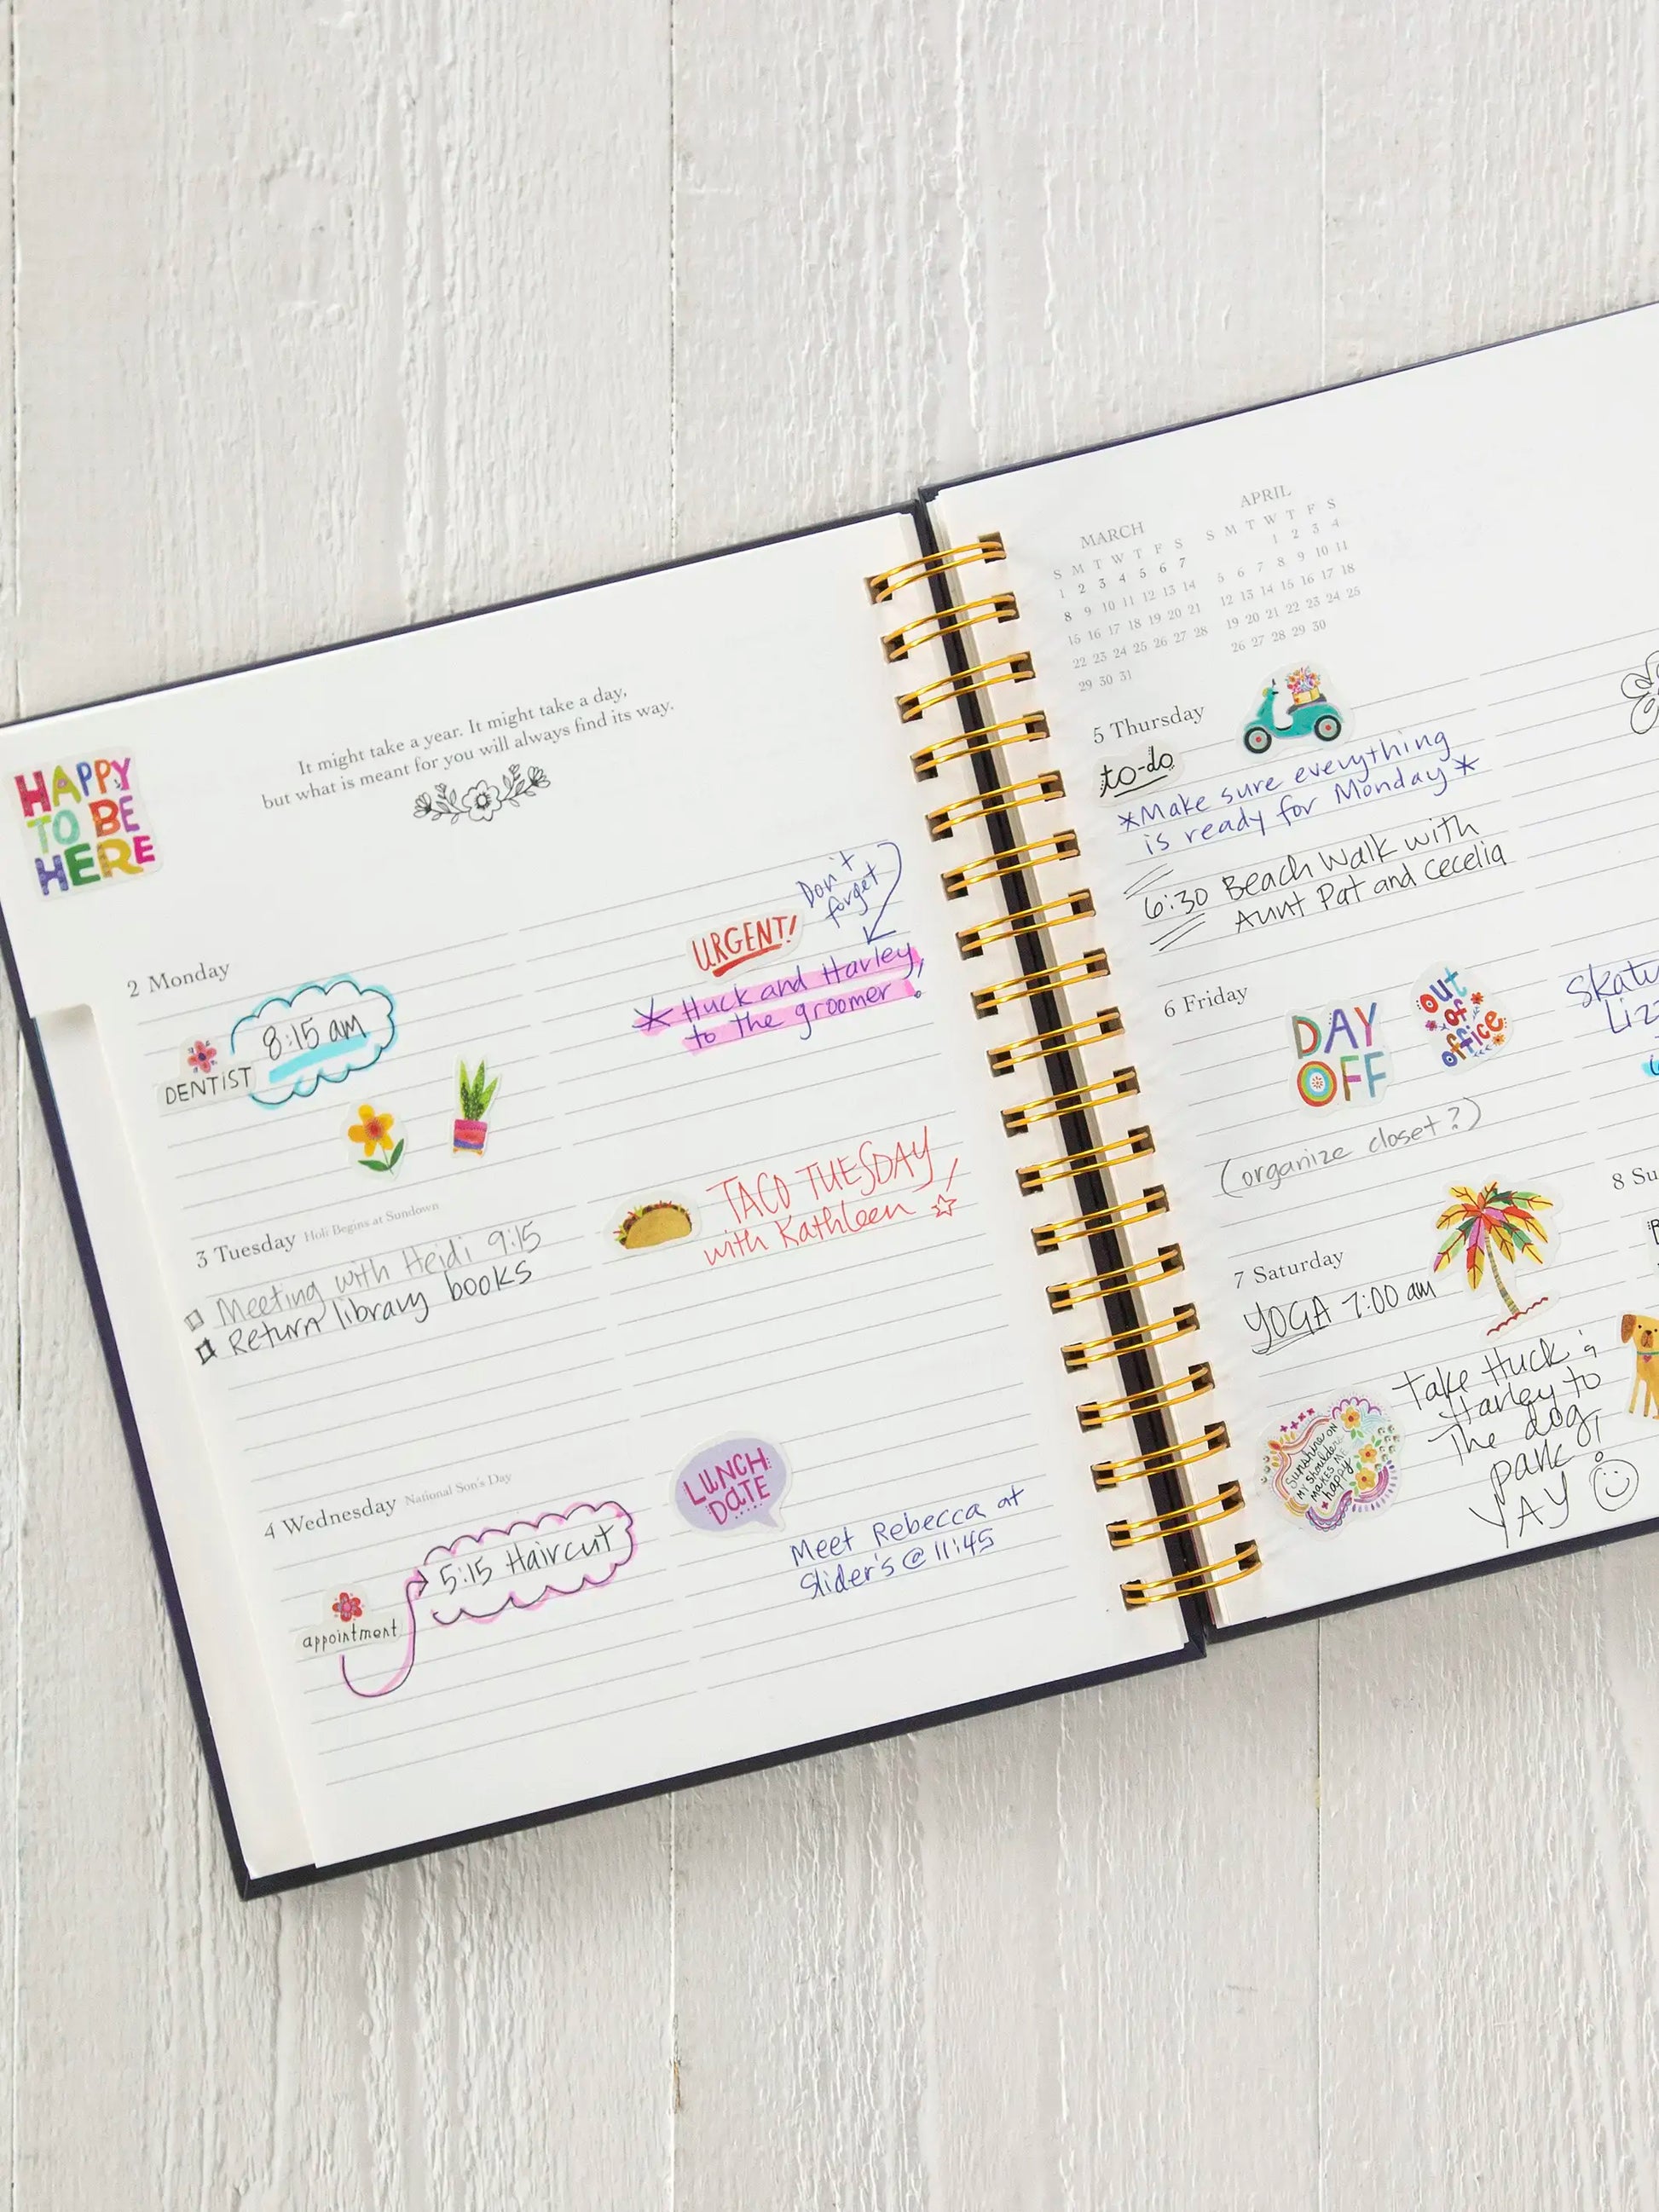 It might take a day,
It might take a year. It might take a day,
but what is meant for you will always find its way.
HAPPY
TO BE
HERE
2 Monday
DENTIST
8:15 am
URGENT!
Don't
forget
* Huck and Harley,
to the groomer!
3 Tuesday Holi Begins at Sundown
Meeting with Heidi 9:15
Return library books
TACO TUESDAY
with Kathleen
4 Wednesday National Son's Day
appointment
5:15 Haircut
LUNCH
DATE
Meet Rebecca at
Slider's @ 11:45
MARCH
S M T W T F S
1 2 3 4 5 6 7
8 9 10 11 12 13 14
15 16 17 18 19 20 21
22 23 24 25 26 27 28
29 30 31
APRIL
S M T W T F S
1 2 3 4
5 6 7 8 9 10 11
12 13 14 15 16 17 18
19 20 21 22 23 24 25
26 27 28 29 30
5 Thursday
to-do
*Make sure everything
is ready for Monday*
6:30 Beach Walk with
Aunt Pat and Cecelia
6 Friday
DAY
OFF
out
of
office
(organize closet?)
7 Saturday
YOGA 7:00 am
Sunshine on
my shoulders
makes me
happy
Take Huck &
Harley to
the dog
park
YAY
8 Su